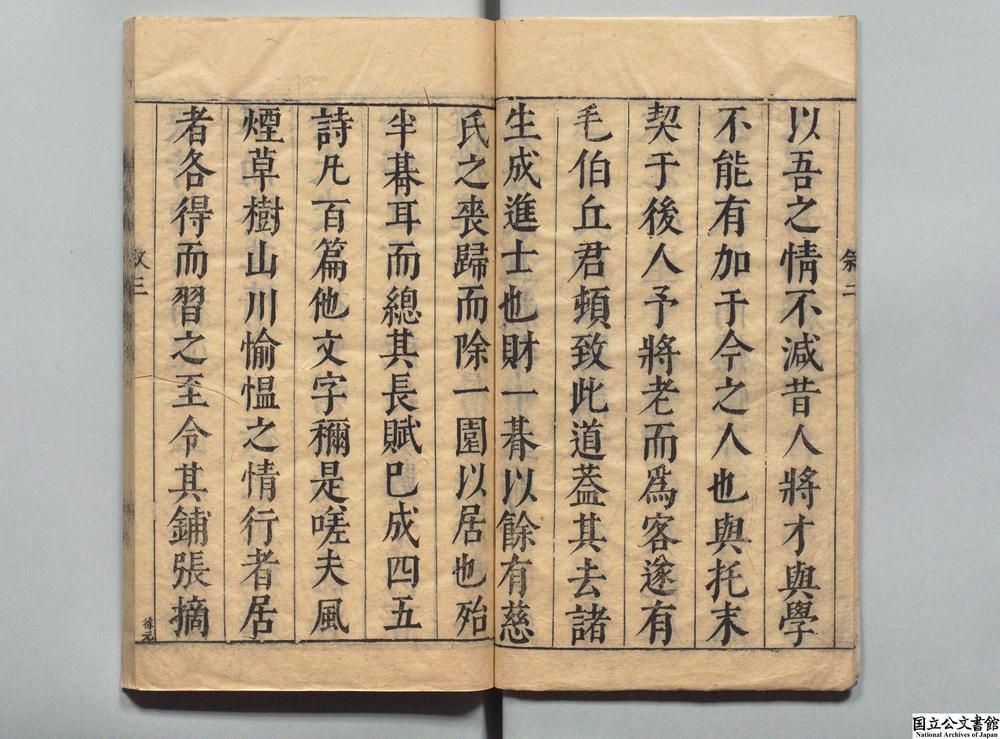 敘二
以吾之情不減昔人將才與學
不能有加于今之人也與托末
契于後人予將老而爲客遂有
毛伯丘君頓致此道蓋其去諸
生成進士也財一朞以餘有慈
氏之喪歸而除一園以居也殆
半朞耳而總其長賦已成四五
詩凡百篇他文字穪是嗟夫風
煙草樹山川愉慍之情行者居
者各得而習之至令其鋪張摘
敘三
徐元
国立公文書館
National Archives of Japan